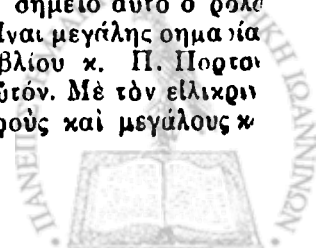 σημεῖο αὐτὸ ὁ ρόλο
εἶναι μεγάλης σημασία
βλίου κ. Π. Πορτοι
ὐτόν. Μὲ τὸν εἰλικριν
ροὺς καὶ μεγάλους κ
ΠΑΝΕΠΙΣ
ΚΗ ΙΩΑΝΝΙΝΩΝ